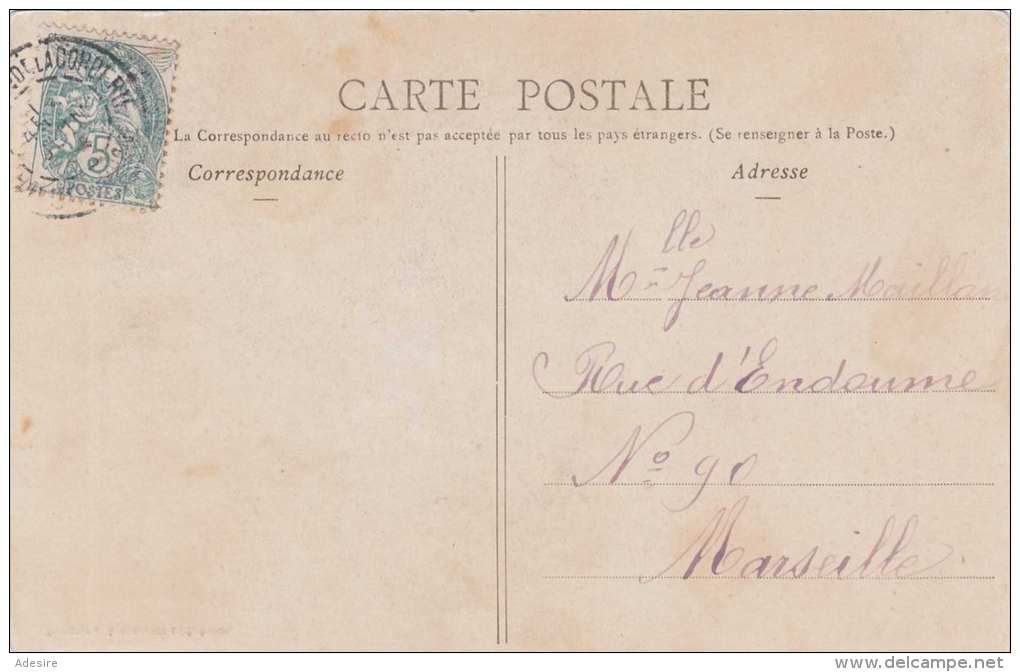 CARTE POSTALE
La Correspondance au recto n'est pas acceptée par tous les pays étrangers. (Se renseigner à la Poste.)
5
POSTES
Correspondance
Adresse
Mlle Jeanne
Rue d'Endoume
No 90
Marseille
Adesire
www.delcampe.net